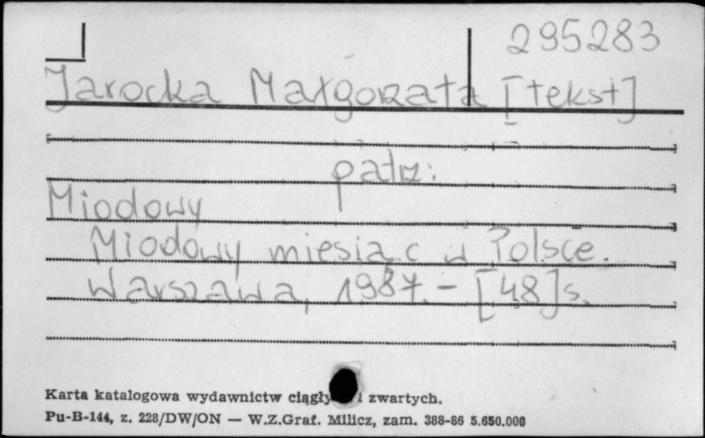 295283
Jarocka Małgorzata [tekst]
patrz:
Miodowy
Miodowy miesiąc w Polsce.
Warszawa, 1987. - [48] s.
Karta katalogowa wydawnictw ciągły i zwartych.
Pu-B-144, z. 228/DW/ON — W.Z.Graf. Milicz, zam. 388-86 5.650.000